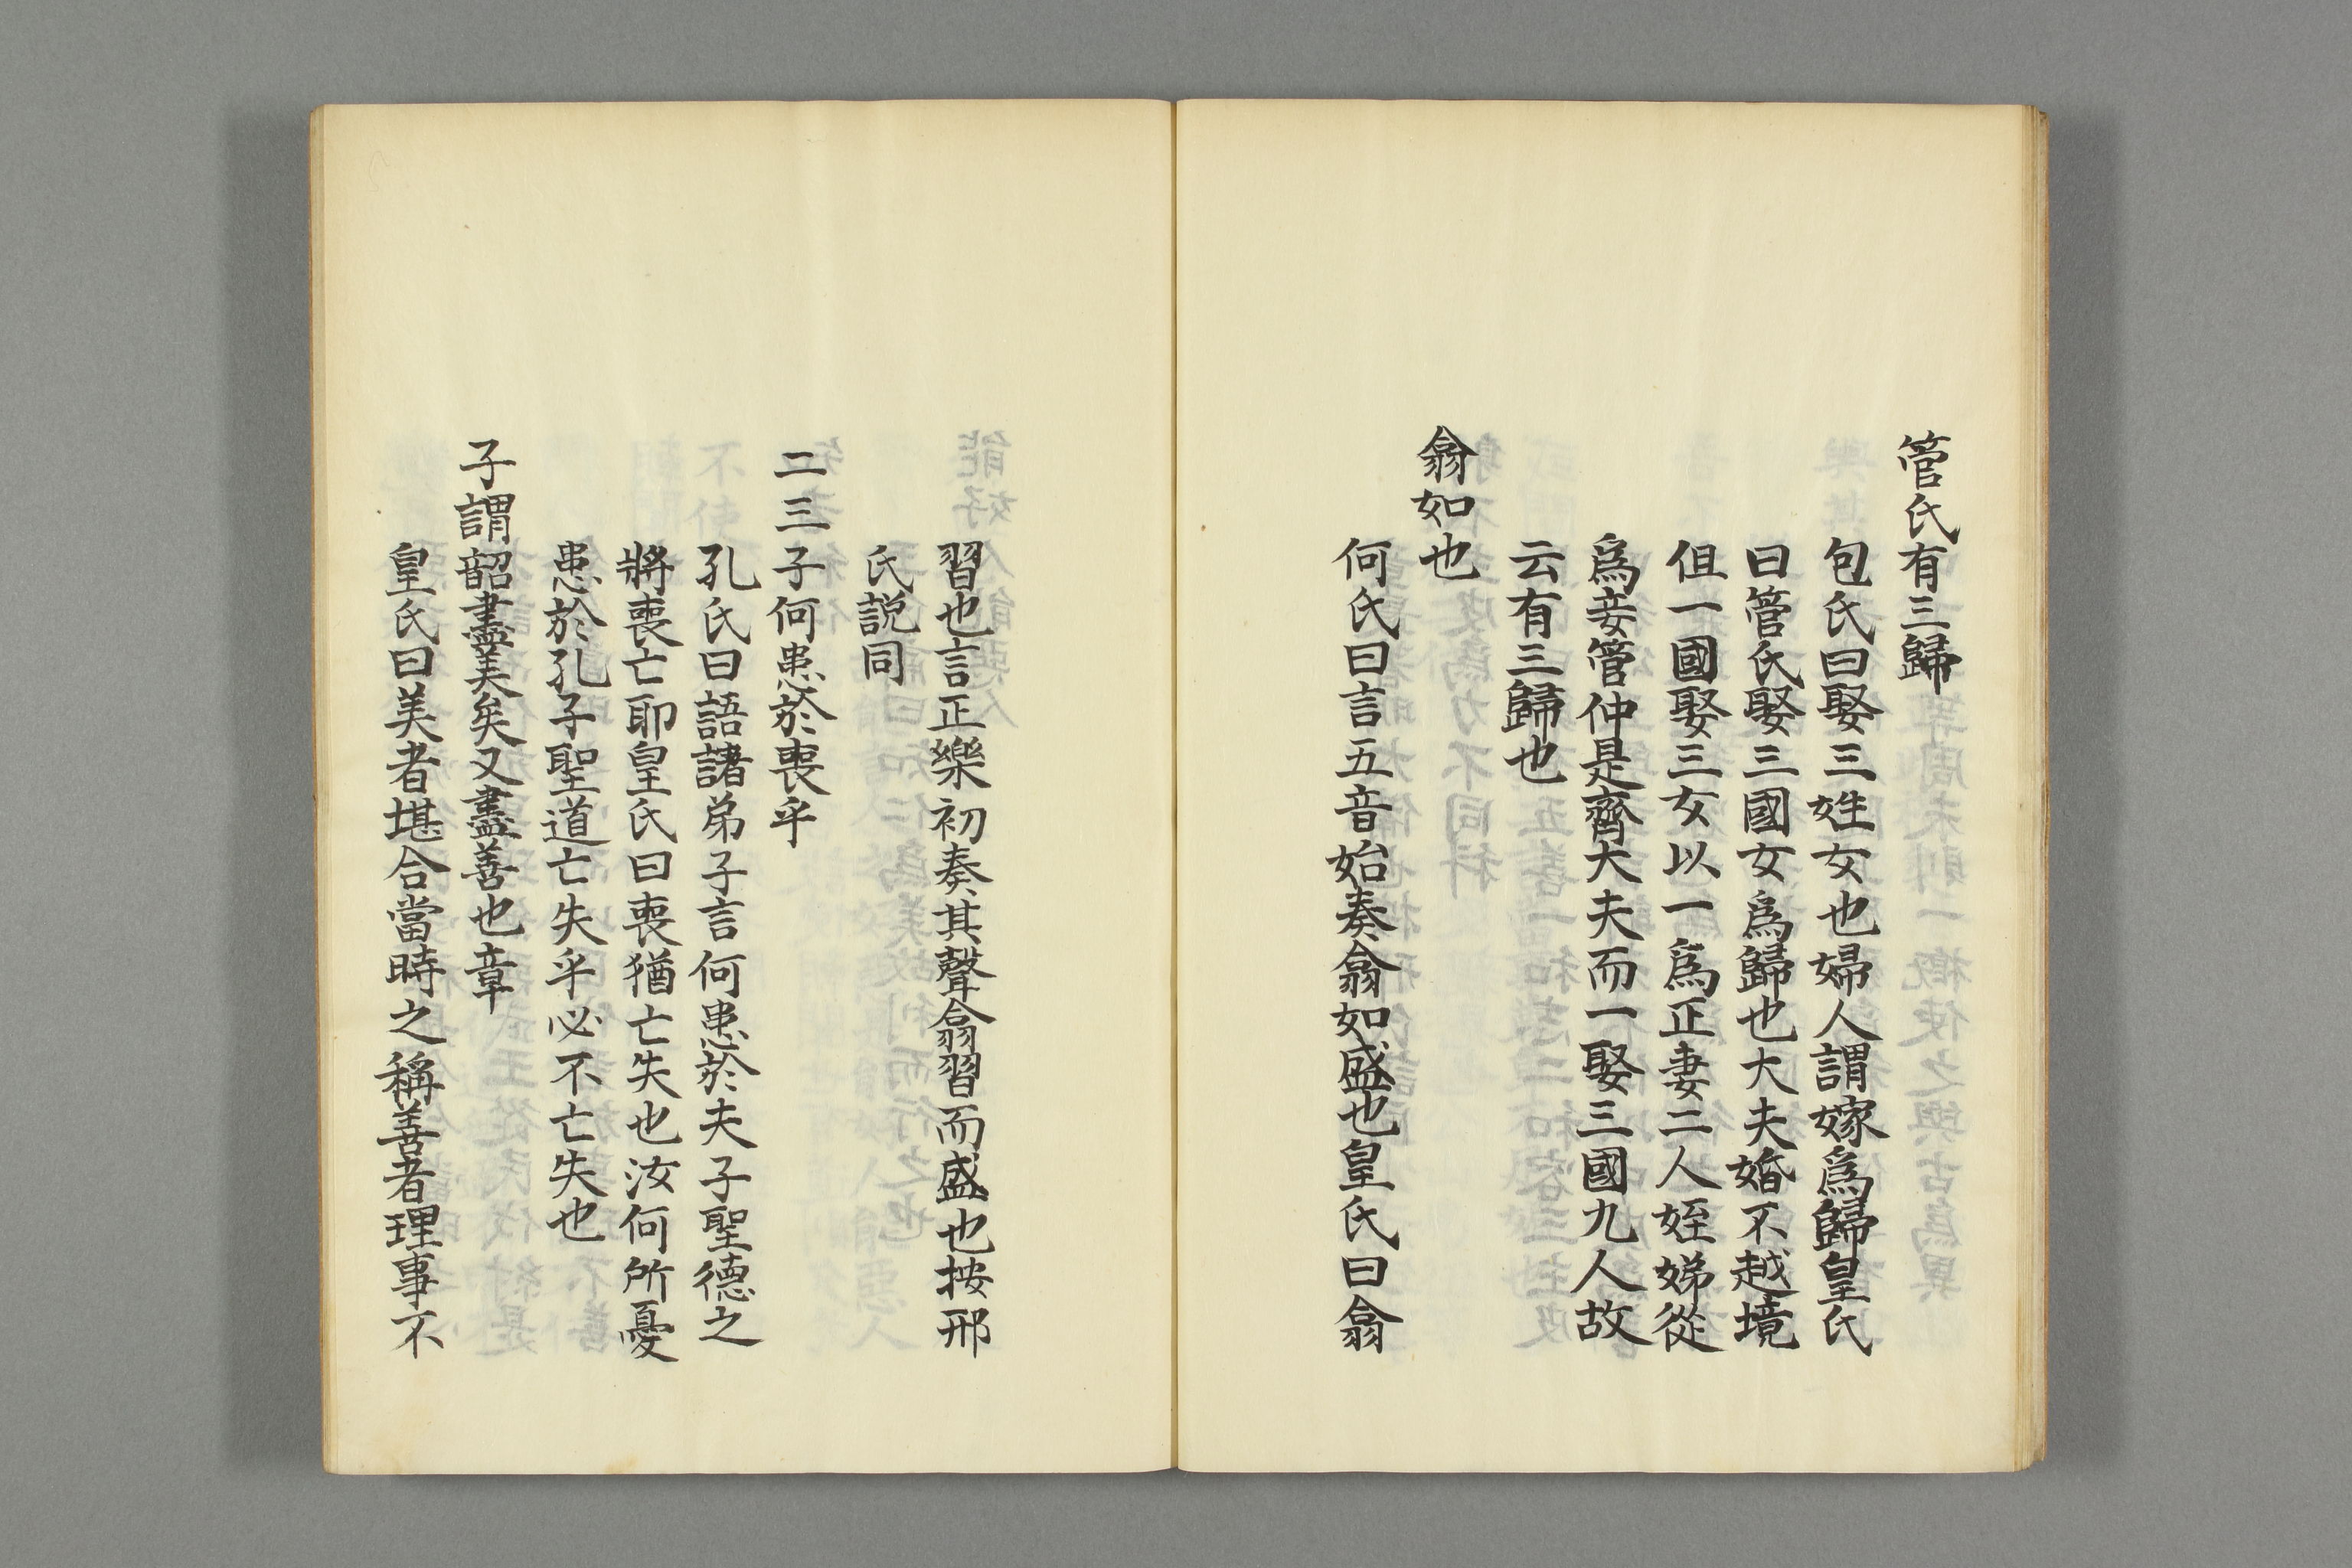 管氏有三歸
包氏曰娶三姓女也婦人謂嫁爲歸皇氏
曰管氏娶三國女爲歸也大夫婚不越境
但一國娶三女以一爲正妻二人姪娣從
爲妾管仲是齊大夫而一娶三國九人故
云有三歸也
翕如也
何氏曰言五音始奏翕如盛也皇氏曰翕
習也言正樂初奏其聲翕習而盛也按邢
氏説同
二三子何患於喪乎
孔氏曰語諸弟子言何患於夫子聖德之
將喪亡耶皇氏曰喪猶亡失也汝何所憂
患於孔子聖道亡失乎必不亡失也
子謂韶盡美矣又盡善也章
皇氏曰美者堪合當時之稱善者理事不